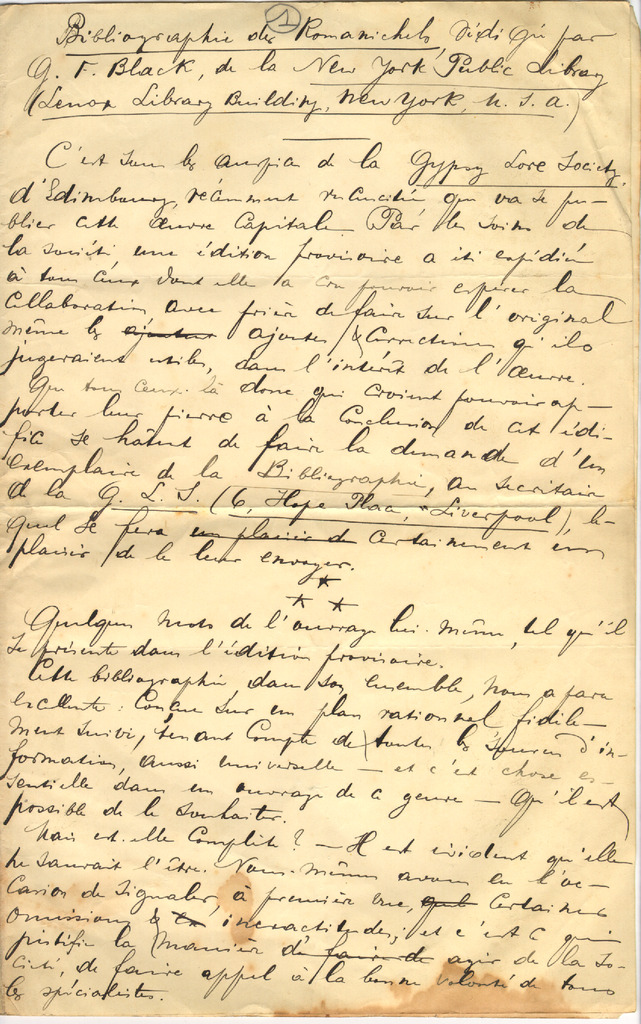 1
Bibliographie des Romanichels, rédigé par
G. F. Black, de la New York Public Library
(Lenox Library Building, New York, U. S. A.)
C'est sous les auspices de la Gypsy Lore Society,
d'Edimbourg, récemment ressuscitée que va se pu-
blier cette œuvre capitale. Par les soins de
la société, une édition provisoire a été expédiée
à tous ceux dont elle a cru pouvoir espérer la
collaboration, avec prière de faire sur l'original
même les ajouter ajoutes & corrections qu'ils
jugeraient utiles, dans l'intérêt de l'œuvre.
Que tous ceux-là donc qui croient pouvoir ap-
porter leur pierre à la conclusion de cet édi-
fice se hâtent de faire la demande d'un
exemplaire de la Bibliographie, au secrétaire
de la G. L. S. (6, Hope Place, Liverpool), le-
quel se fera un plaisir de certainement un
plaisir de le leur envoyer.
* * *
Quelques mots de l'ouvrage lui-même, tel qu'il
se présente dans l'édition provisoire.
Cette bibliographie dans son ensemble, nous a paru
excellente: conçue sur un plan rationnel fidèle-
ment suivi, tenant compte de toutes les sources d'in-
formation, aussi universelle — et c'est chose es-
sentielle dans un ouvrage de ce genre — qu'il est
possible de le souhaiter.
Mais est-elle complète? — Il est évident qu'elle
ne saurait l'être. Nous-mêmes avons eu l'oc-
casion de signaler, à première vue, certaines
omissions & inexactitudes; et c'est ce qui
justifie la manière de faire de agir de la so-
ciété, de faire appel à la bonne volonté de tous
les spécialistes.